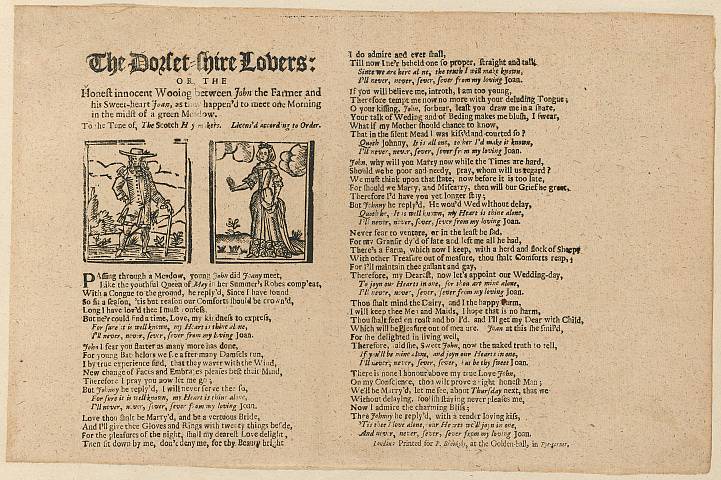 The Dorset-shire Lovers:
OR, THE
Honest innocent Wooing between John the Farmer and
his Sweet-heart Joan, as they happen'd to meet one Morning
in the midst of a green Meadow.
To the Tune of, The Scotch Licens'd according to Order.
PAssing through a Meadow, young John did Jenny meet,
Like the youthful Queen of May in her Summer's Robes compleat,
With a Congue to the Ground, he reply'd, Since I have found
So fit a season, 'tis but reason our Comforts should be crown'd,
Long I have lov'd thee I must confess.
But ne'r could find a time, Love, my kindness to express,
For sure it is well known, my Heart is thine alone,
I'll never, never, sever, sever from my loving Joan.
John I fear you flatter as many more has done,
For young Batchelors we see after many Damsels run,
I by true experience find, that they waver with the Wind,
New change of Faces and Embraces pleases best their Mind,
Therefore I pray you now let me go;
But Johnny he reply'd, I will never serve thee so,
For sure it is well known, my Heart is thine alone,
I'll never, never, sever, sever from my loving Joan.
Love thou shalt be Marry'd, and be a vertuous Bride,
And I'll give thee Gloves and Rings with twenty things beside,
For the pleasures of the night, shall my dearest Love delight,
Then sit down by me, don't deny me, for thy Beauty bright
I do admire and ever shall,
Till now I ne'r beheld one so proper, straight and tall,
Since we are here alone, the truth I will make known,
I'll never, never, sever, sever from my loving Joan.
If you will believe me, introth, I am too young,
Therefore tempt me now no more with your deluding Tongue;
O your kissing, John, forbear, least you draw me in a snare,
Your talk of Weding and of Beding makes me blush, I swear,
What if my Mother should chance to know,
That in the silent Mead I was kiss'd and courted so?
Quoth Johnny, It is all one, to her I'd make it known,
I'll never, never, sever, sever from my loving Joan.
John, why will you Marry now while the Times are hard,
Should we be poor and needy, pray, whom will us regard?
We must think upon that state, now before it is too late,
For should we Marry, and Miscarry, then will our Grief be great,
Therefore I'd have you yet longer stay;
But Johnny he reply'd, He wou'd Wed without delay,
Quoth he, It is well known, my Heart is thine alone,
I'll never, never, sever, sever from my loving Joan.
Never fear to venture, or in the least be sad,
For my Gransir dy'd of late and left me all he had,
There's a Farm, which now I keep, with a herd and flock of Sheep,
With other Treasure out of measure, thou shalt Comforts reap,
For I'll maintain thee gallant and gay,
Therefore, my Dearest, now let's appoint our Wedding-day,
To joyn our Hearts in one, for thou art mine alone,
I'll never, never, sever, sever from my loving Joan.
Thou shalt mind the Dairy, and I the happy Farm,
I will keep thee Men and Maids, I hope that is no harm,
Thou shalt feed on roast and boil'd, and I'll get my Dear with Child,
Which will be Pleasure out of measure. Joan at this she smil'd,
For she delighted in living well,
Therefore, said she, Sweet John, now the naked truth to tell,
If you'll be mine alone, and joyn our Hearts in one,
I'll never, never, sever, sever, but be thy sweet Joan.
There is none I honour above my true Love John,
On my Conscience, thou wilt prove a right honest Man;
We'll be Marry'd, let me see, about Thursday next, thus we
Without delaying, foolish staying never pleases me,
Now I admire the charming Bliss;
Then Johnny he reply'd, with a tender loving kiss,
'Tis thee I love alone, our Hearts we'll joyn in one,
And never, never, sever, sever from my loving Joan.
London: Printed for at the Golden-ball, in Pye-corner.